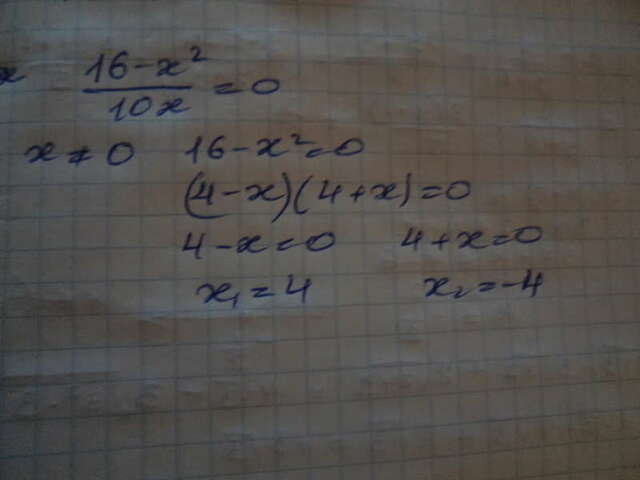 x (16-x²)/(10x) = 0
x ≠ 0 16-x²=0
(4-x)(4+x)=0
4-x=0 4+x=0
x₁=4 x₂=-4